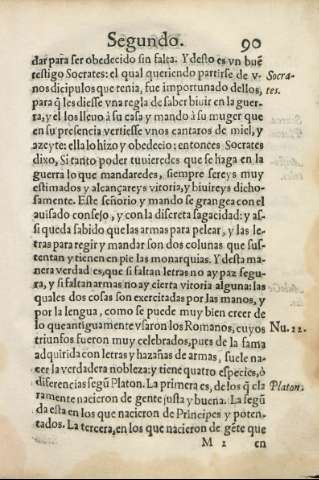 Segundo. 90
dar para ser obedecido sin falta. Y desto es vn buẽ
testigo Socrates: el qual queriendo partirse de v- Socra-
nos dicipulos que tenia, fue importunado dellos, tes.
para q̃ les diesse vna regla de saber biuir en la guer-
ra, y el los lleuo à su casa y mando à su muger que
en su presencia vertiesse vnos cantaros de miel, y
azeyte: ella lo hizo y obedecio: entonces Socrates
dixo, Si tanto poder tuuieredes que se haga en la
guerra lo que mandaredes, siempre sereys muy
estimados y alcançareys vitoria, y biuireys dicho-
samente. Este señorio y mando se grangea con el
auisado consejo, y con la discreta sagacidad: y as-
si queda sabido que las armas para pelear, y las le-
tras para regir y mandar son dos colunas que sus-
tentan y tienen en pie las monarquias. Y desta ma-
nera verdad es, que si faltan letras no ay paz segu-
ra, y si faltan armas no ay cierta vitoria alguna: las
quales dos cosas son exercitadas por las manos, y
por la lengua, como se puede muy bien creer de
lo que antiguamente vsaron los Romanos, cuyos Nu. 22.
triunfos fueron muy celebrados, pues de la fama
adquirida con letras y hazañas de armas, suele na-
cer la verdadera nobleza: y tiene quatro especies, ò
diferencias segũ Platon. La primera es, de los q̃ cla Platon.
ramente nacieron de gente justa y buena. La segũ
da esta en los que nacieron de Principes y poten-
tados. La tercera, en los que nacieron de gẽte que
M 2 en